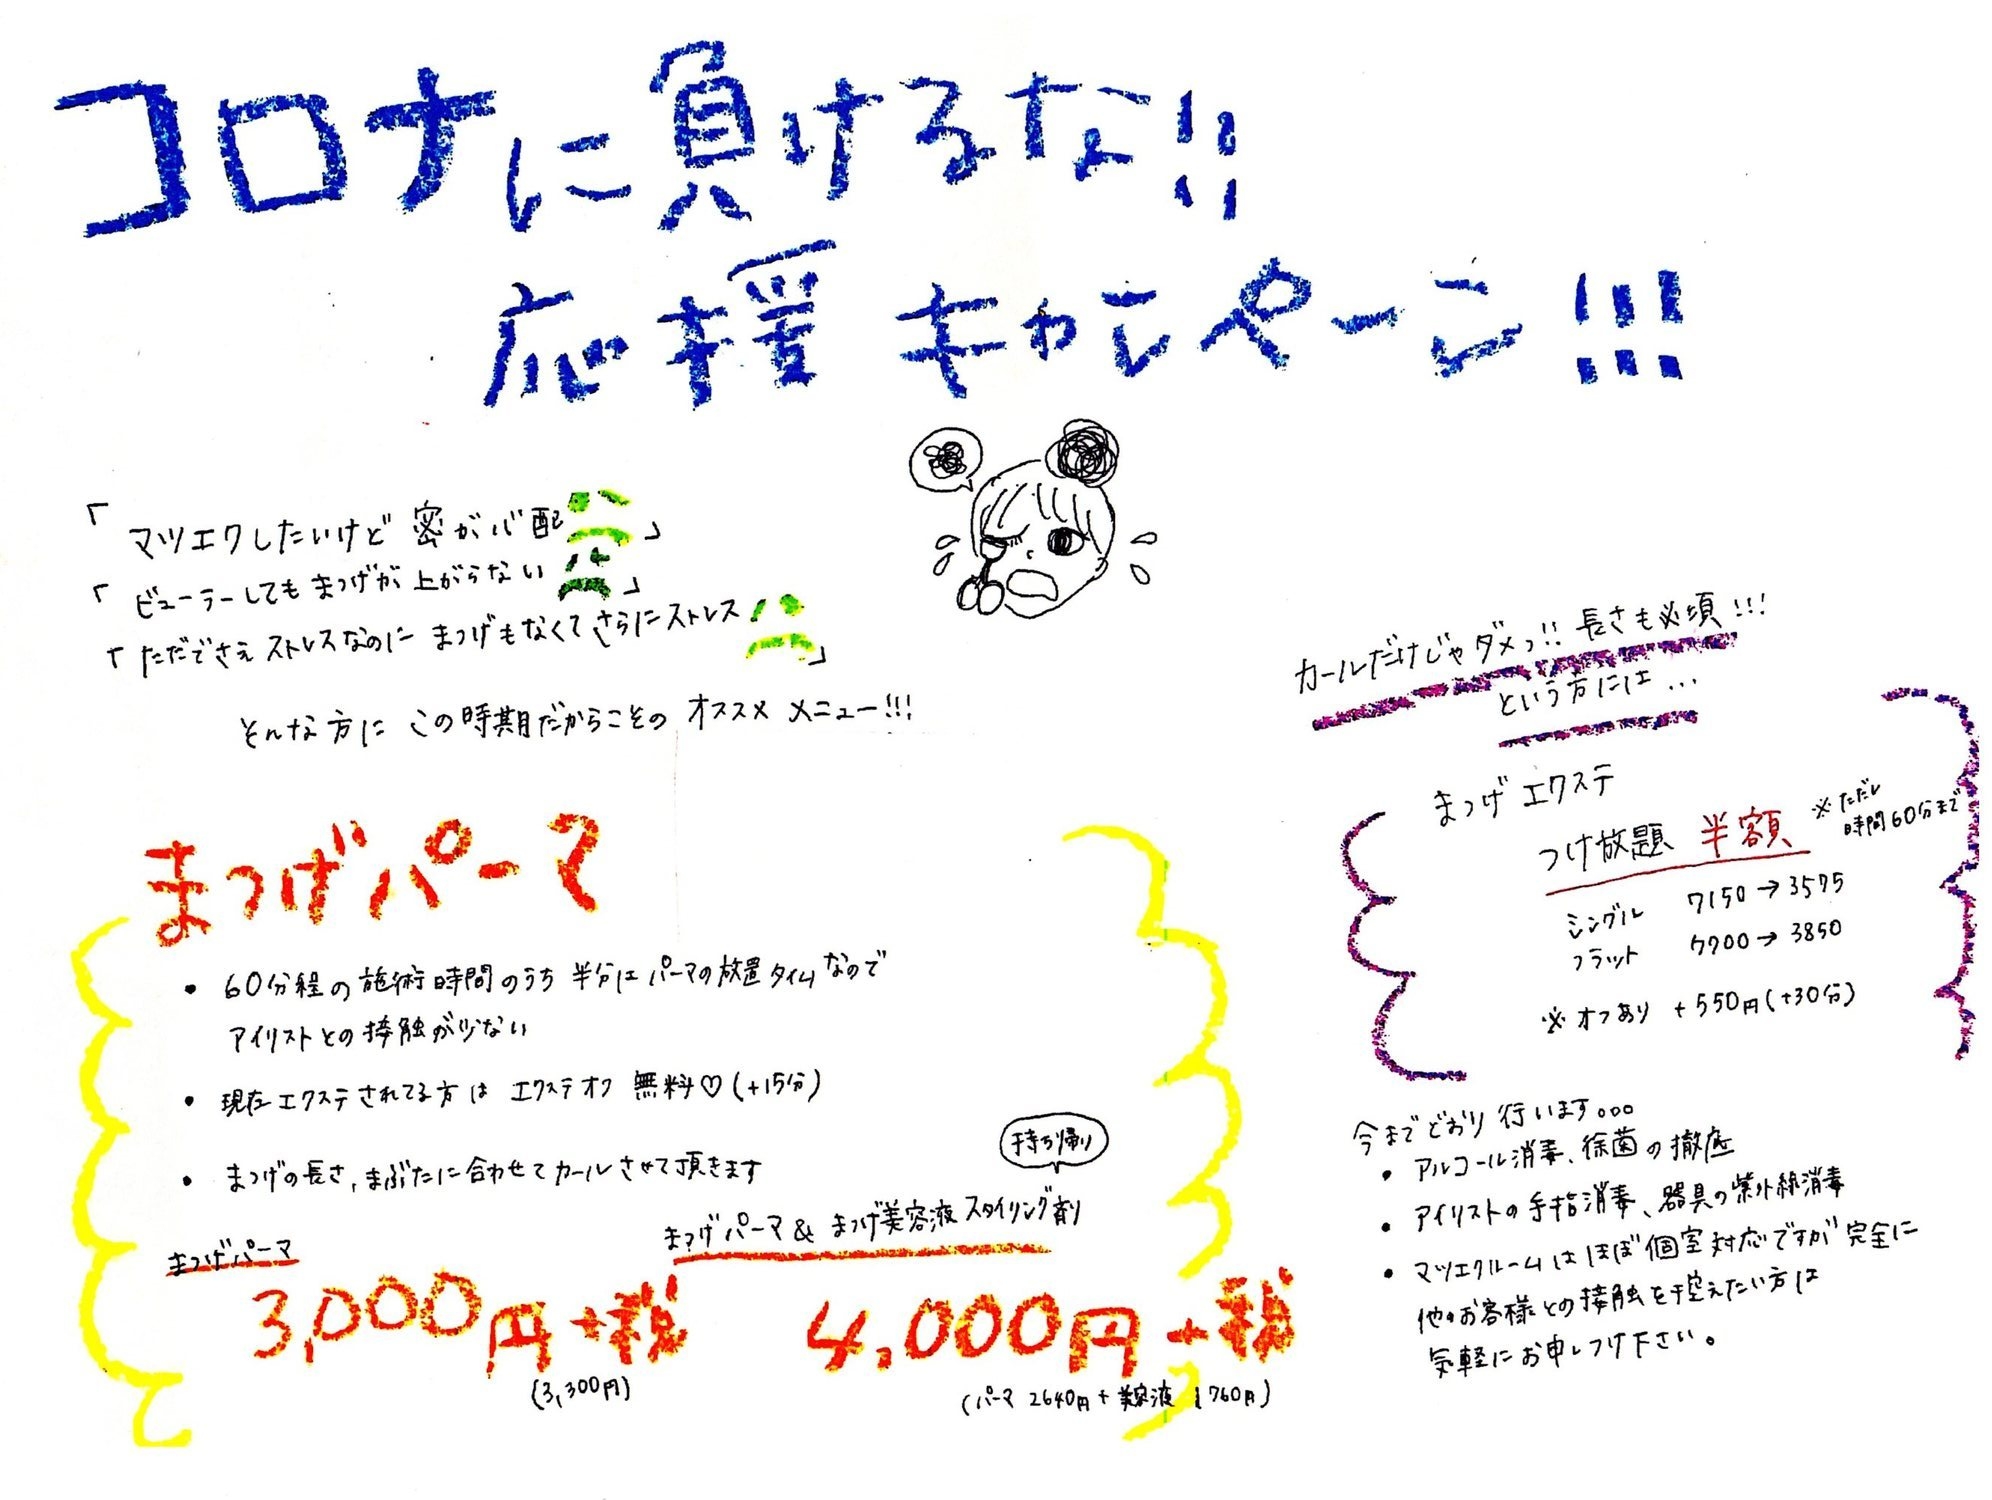 コロナに負けるな!!
応援キャンペーン!!!
「マツエクしたいけど密が心配」
「ビューラーしてもまつげが上がらない」
「ただでさえストレスなのにまつげもなくてさらにストレス」
そんな方にこの時期だからこそのオススメメニュー!!!
まつげパーマ
・60分程の施術時間のうち半分はパーマの放置タイムなので
アイリストとの接触が少ない
・現在エクステされてる方はエクステオフ無料♡(+15分)
・まつげの長さ、まぶたに合わせてカールさせて頂きます
まつげパーマ
3,000円+税
(3,300円)
持ち帰り
まつげパーマ&まつげ美容液スタイリング剤
4,000円+税
(パーマ2640円+美容液1760円)
カールだけじゃダメっ!!長さも必須!!!
という方には…
まつげエクステ
つけ放題 半額 ※ただし
時間60分まで
シングル 7150→3575
フラット 7700→3850
※オフあり +550円(+30分)
今までどおり行います。。。
・アルコール消毒、徐菌の撤底
・アイリストの手指消毒、器具の紫外線消毒
・マツエクルームはほぼ個室対応ですが完全に
他のお客様との接触を控えたい方は
気軽にお申しつけ下さい。